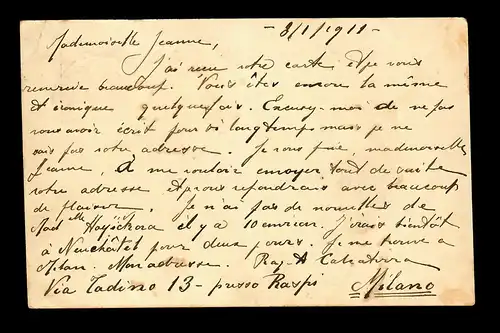 8/1/1911 -
Mademoiselle Jeanne,
J'ai reçu votre carte et je vous
remercie beaucoup. Vous êtes encore la même
et ironique quelquefois. Excusez-moi de ne pas
vous avoir écrit pour si longtemps mais je ne
sais pas votre adresse. Je vous prie, mademoiselle
Jeanne, à me vouloir envoyer tout de suite
votre adresse et je vous répondrais avec beaucoup
de plaisir. Je n'ai pas de nouvelles de
Mad elle il y a 10 environ. J'irais bientôt
à Neuchâtel pour deux jours. Je me trouve à
Milan. Mon adresse. Rag. A. Calcaterra
Via Tadino 13 - presso Raspi Milano